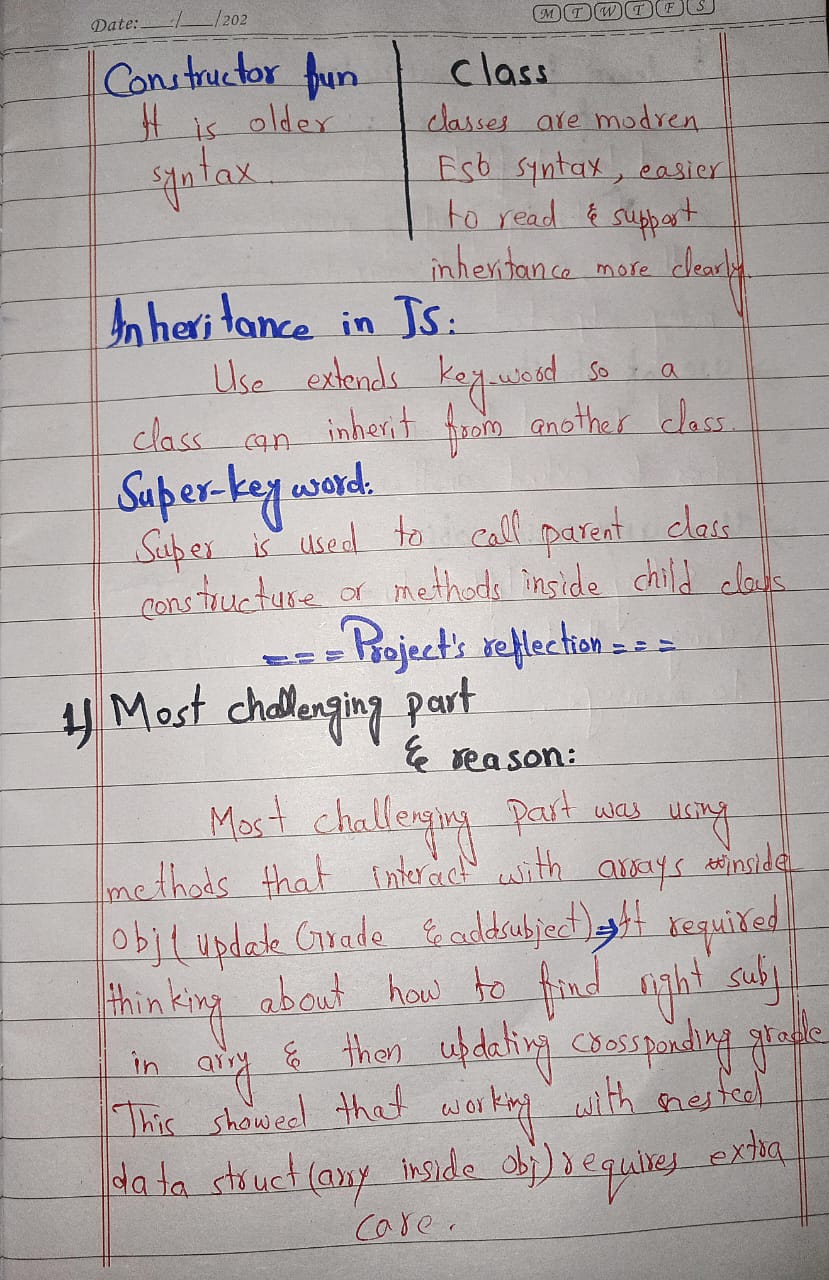 Date: __/__/202
M T W T F S
Constructor fun | Class
It is older | classes are modren
syntax. | Es6 syntax, easier
to read & support
inheritance more clearly.
Inheritance in JS:
Use extends key-word so a
class can inherit from another class.
Super-key word:
Super is used to call parent class
constructure or methods inside child class
=== Project's reflection ===
1) Most challenging part
& reason:
Most challenging part was using
methods that interact with arrays inside
obj (update Grade & addsubject) ⇒ It required
thinking about how to find right subj
in arry & then updating crossponding grade
This showed that working with nested
data struct (arry inside obj) requires extra
care.